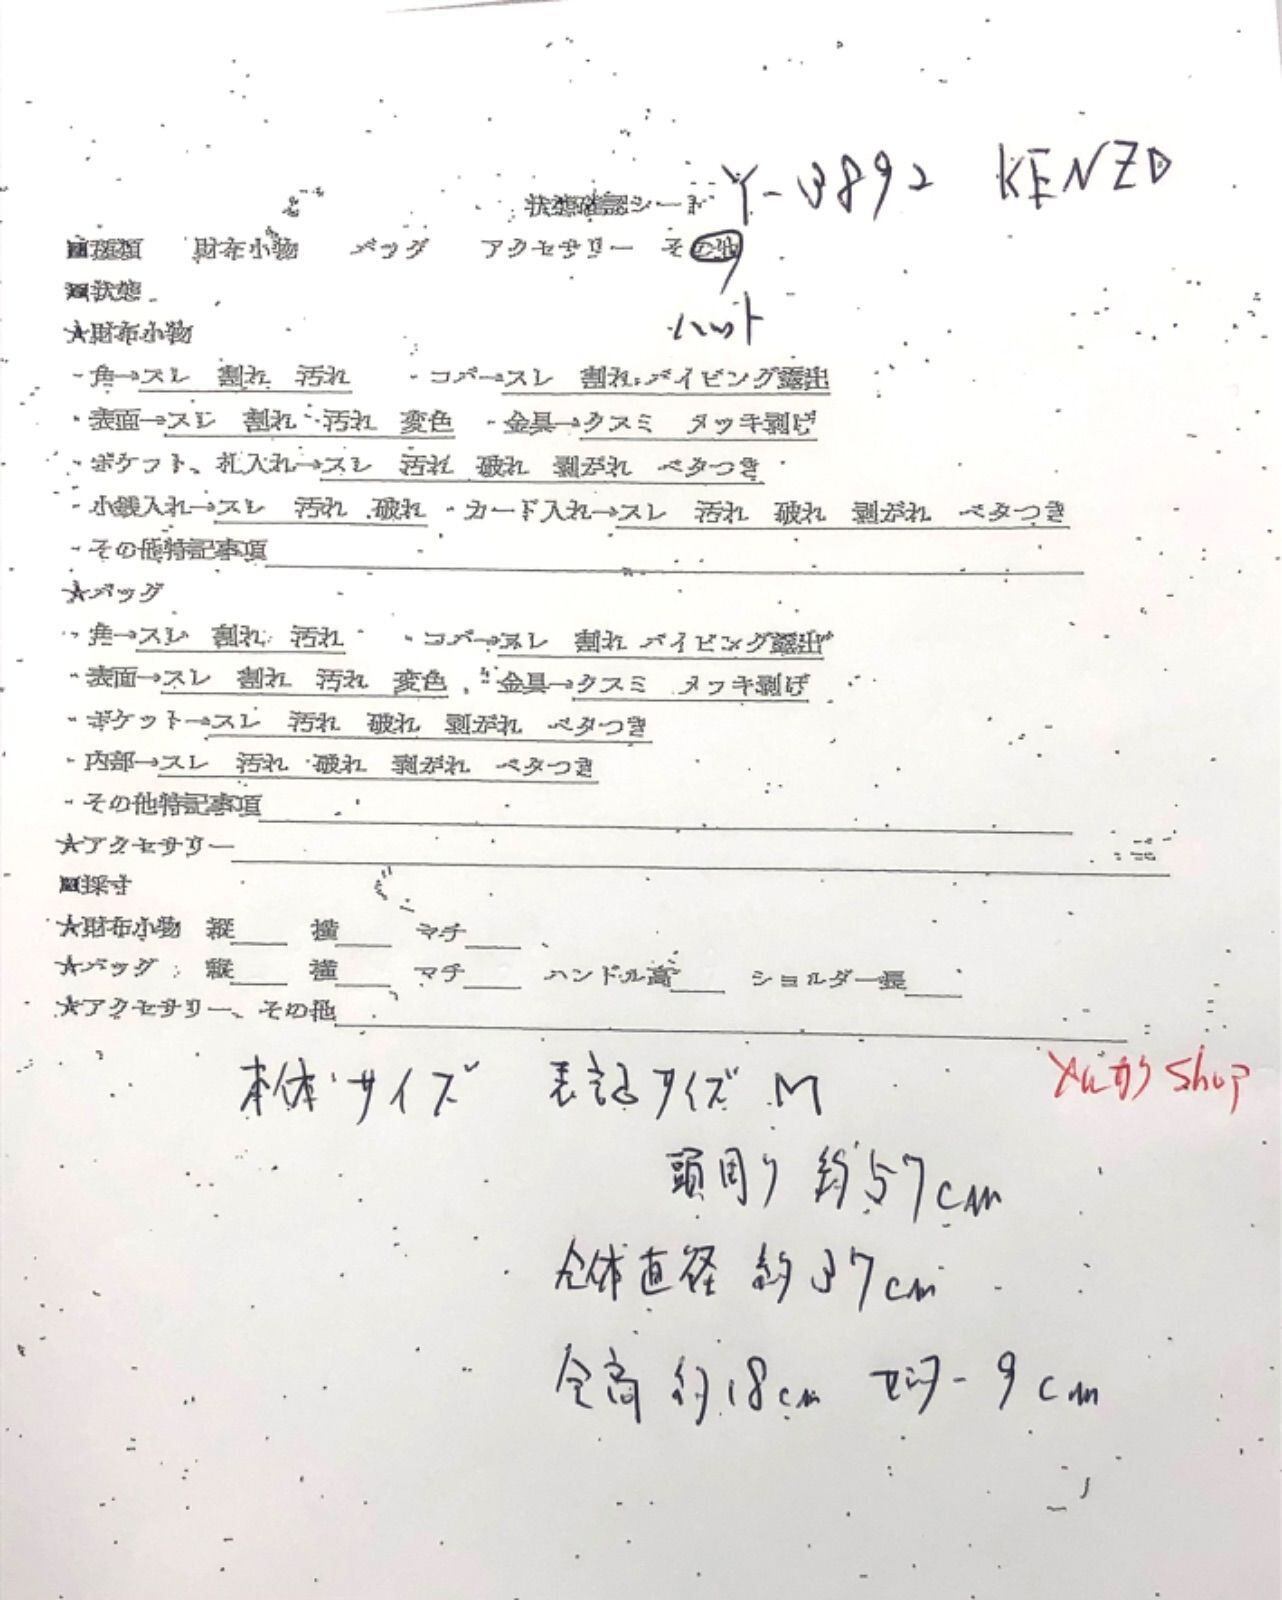 Y-3892 KENZO
状態確認シート
■種類 財布小物 バッグ アクセサリー その他
■状態 ハット
★財布小物
・角→スレ 割れ 汚れ ・コバ→スレ 割れ パイピング露出
・表面→スレ 割れ 汚れ 変色 ・金具→クスミ メッキ剥げ
・ポケット、札入れ→スレ 汚れ 破れ 剥がれ ベタつき
・小銭入れ→スレ 汚れ 破れ ・カード入れ→スレ 汚れ 破れ 剥がれ ベタつき
・その他特記事項
★バッグ
・角→スレ 割れ 汚れ ・コバ→スレ 割れ パイピング露出
・表面→スレ 割れ 汚れ 変色 ・金具→クスミ メッキ剥げ
・ポケット→スレ 汚れ 破れ 剥がれ ベタつき
・内部→スレ 汚れ 破れ 剥がれ ベタつき
・その他特記事項
★アクセサリー
■採寸
★財布小物 縦 横 マチ
★バッグ 縦 横 マチ ハンドル高 ショルダー長
★アクセサリー、その他
本体サイズ 表記サイズ M
Shop
頭周り 約57cm
全体直径 約37cm
全高 約18cm 9cm